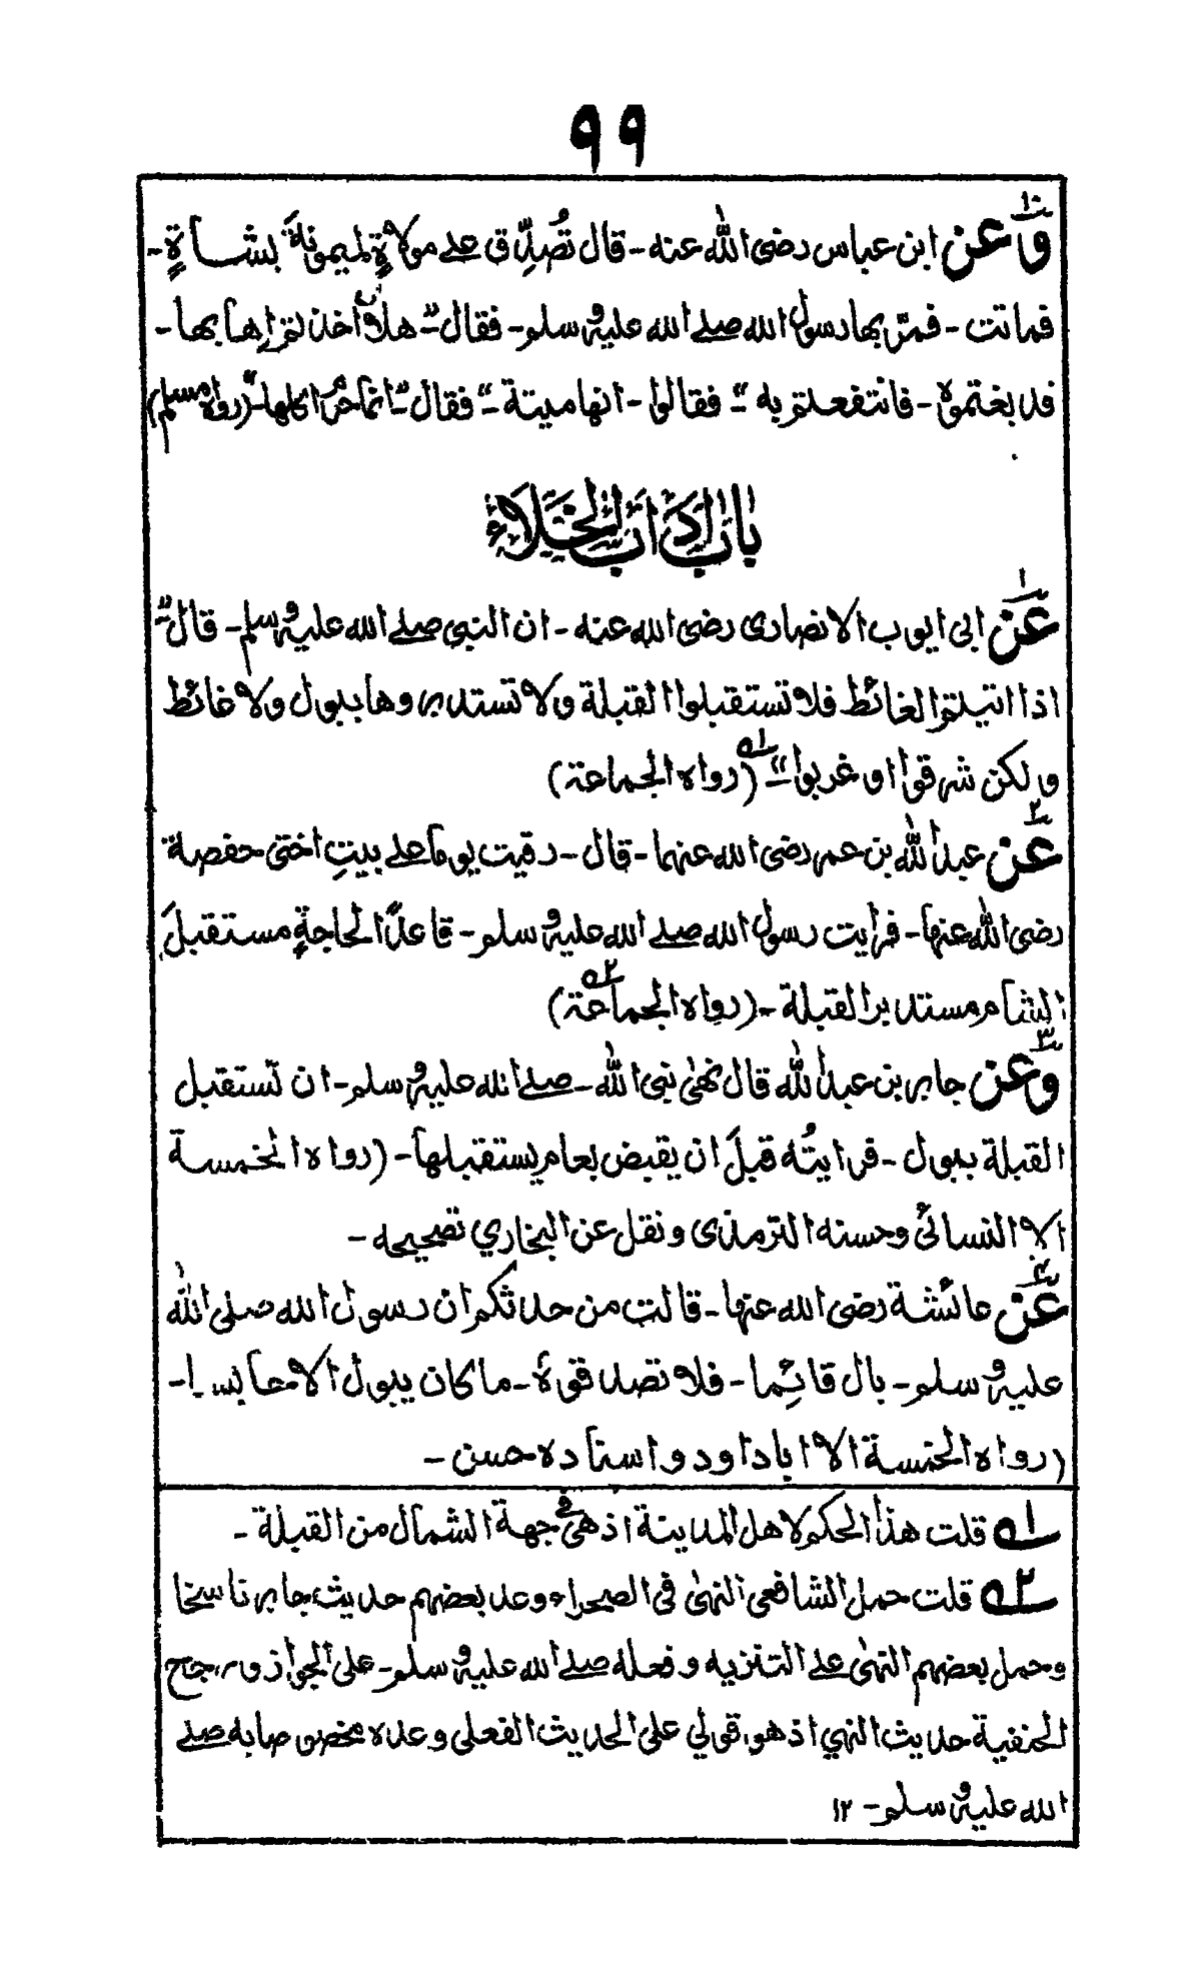 ٩٩
١٠
وعن ابن عباس رضی الله عنه - قال تُصُدِّق علے مولاةٍ لميمونةَ بشاةٍ -
فماتت - فمرّ بها رسول الله صلے الله عليه وسلم - فقال "- هلا اخذتم اهابها -
فدبغتموه - فانتفعتم به "- فقالوا - انها ميتة -" فقال "- انما حرُم اكلها" - (رواه مسلم)
بابُ اٰدَابِ الْخَلَاءِ
١
عَن ابی ايوب الانصاری رضی الله عنه - ان النبي صلے الله عليه وسلم - قال "-
اذا اتيتم الغائط فلا تستقبلوا القبلة ولا تستدبروها ببول ولا غائط
ولكن شرقوا او غربوا "- ١ه (رواه الجماعة)
٢
عَن عبد الله بن عمر رضی الله عنهما - قال - رقيت يوما علے بيتِ اختی حفصة
رضی الله عنها - فرأيت رسول الله صلے الله عليه وسلم - قاعدًا لحاجةٍ مستقبلَ
الشام مستدبر القبلة - (رواه الجماعة) ٢ه
٣
وعن جابر بن عبد الله قال نهٰی نبی الله - صلے الله عليه وسلم - ان تستقبل
القبلة ببول - فرايتُه قبلَ ان يقبض بعام يستقبلها - (رواه الخمسة
الا النسائی وحسنه الترمذی ونقل عن البخاري تصحيحه -
٤
عَن عائشة رضی الله عنها - قالت من حدثكم ان رسول الله صلی الله
عليه وسلم - بال قائِما - فلا تصدقوهُ - ما كان يبول الا جالسا -
(رواه الخمسة الا اباداود واسناده حسن -
١ه قلت هذا الحكم لاهل المدينة اذ هی فی جهة الشمال من القبلة -
٢ه قلت حمل الشافعی النهیٰ فی الصحراء وعد بعضهم حديث جابر ناسخا
وحمل بعضهم النهیٰ علے التنزيه وفعله صلے الله عليه وسلم - علی الجواز ورجح
الحنفية حديث النهي اذ هو قولي علی الحديث الفعلی وعده مخصوصا به صلے
الله عليه وسلم - ١٢